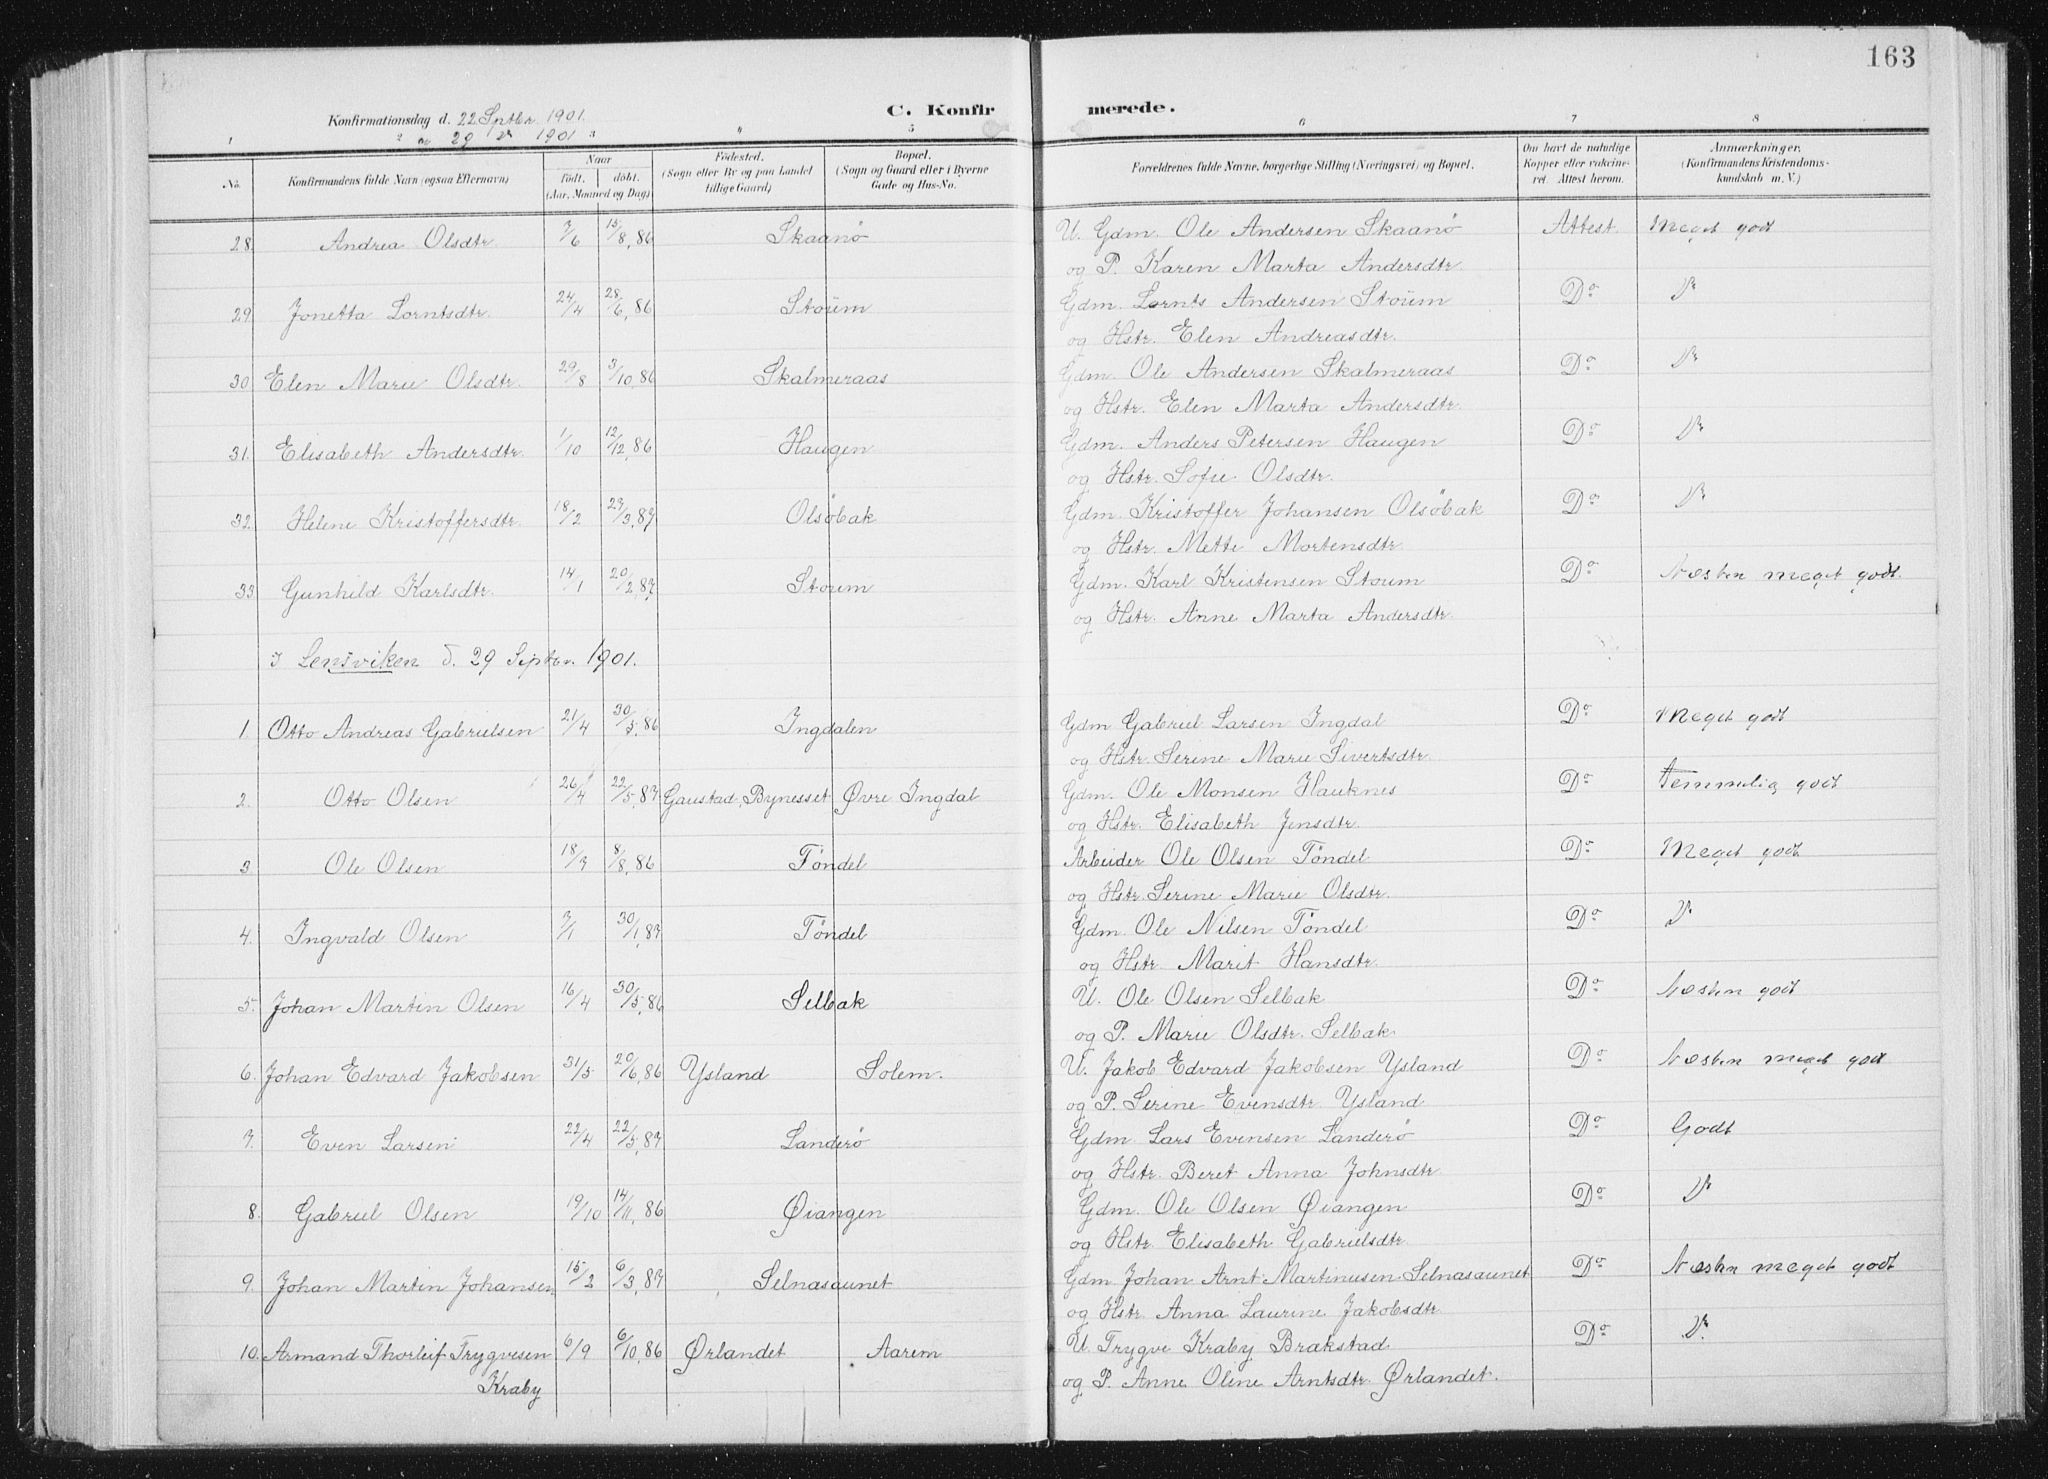 163
Konfirmationsdag d. 22 Septbr. 1901.
C. Konfirmerede.
29 1901
1 2 3 4 5 6 7 8
No. Konfirmandens fulde Navn (ogsaa Efternavn) Naar født. døbt. (Aar, Maaned og Dag) Fødested. (Sogn eller By og paa Landet tillige Gaard) Bopæl. (Sogn og Gaard eller i Byerne Gade og Hus-No. Forældrenes fulde Navne, borgerlige Stilling (Næringsvei) og Bopæl. Om havt de naturlige Kopper eller vakcineret. Attest herom. Anmærkninger. (Konfirmandens Kristendomskundskab m. V.)
28. Andrea Olsdtr. 7/6 15/8, 86 Skaanø U. Gdm. Ole Andersen Skaanø Attest. Meget godt
og P. Karen Marta Andersdtr.
29. Jonetta Lorntsdtr. 24/4 28/6, 86 Stoum Gdm. Lornts Andersen Stoum Do Do
og Hstr. Elen Andreasdtr.
30. Elen Marie Olsdtr. 29/8 3/10, 86 Skalmeraas Gdm. Ole Andersen Skalmeraas Do Do
og Hstr. Elen Marta Andersdtr.
31. Elisabeth Andersdtr. 1/10 12/12, 86 Haugen Gdm. Anders Petersen Haugen Do Do
og Hstr. Sofie Olsdtr.
32. Helene Kristoffersdtr. 18/2 27/3, 87 Olsøbak Gdm. Kristoffer Johansen Olsöbak Do Do
og Hstr. Mette Mortensdtr.
33 Gunhild Karlsdtr. 14/1 20/2, 87 Stoum Gdm. Karl Kristensen Stoum Do Næsten meget godt.
og Hstr. Anne Marta Andersdtr.
I Lensviken d. 29 Septbr. 1901.
1 Otto Andreas Gabrielsen 21/4 30/5, 86 Ingdalen Gdm Gabriel Larsen Ingdal Do Meget godt
og Hstr. Serine Marie Sivertsdtr.
2. Otto Olsen 26/4 22/5, 87 Gaustad, Bynesset Øvre Ingdal Gdm. Ole Monsen Hauknes Do Temmelig godt
og Hstr. Elisabeth Jensdtr.
3 Ole Olsen 18/7 8/8, 86 Tøndel Arbeider Ole Olsen Tøndel Do Meget godt
og Hstr. Serine Marie Olsdtr.
4. Ingvald Olsen 7/1 30/1, 87 Tøndel Gdm. Ole Nilsen Tøndel Do Do
og Hstr. Marit Hansdtr.
5. Johan Martin Olsen 16/4 30/5, 86 Selbak U. Ole Olsen Selbak Do Næsten godt
og P. Marie Olsdtr. Selbak
6. Johan Edvard Jakobsen 31/5 20/6, 86 Ysland Solem. U. Jakob Edvard Jakobsen Ysland Do Næsten meget godt
og P. Serine Evensdtr Ysland
7. Even Larsen 22/4 22/5, 87 Landerø Gdm Lars Evensen Landerø Do Godt
og Hstr. Beret Anna Johnsdtr
8. Gabriel Olsen 19/10 14/11, 86 Øiangen Gdm. Ole Olsen Øiangen Do Do
og Hstr. Elisabeth Gabrielsdtr.
9. Johan Martin Johansen 15/2 6/3, 87 Selnasaunet Gdm Johan Arnt Martinusen Selnasaunet Do Næsten meget godt
og Hstr. Anna Laurine Jakobsdtr.
10. Armand Thorleif Trygvesen 6/9 6/10, 86 Ørlandet Aarem U Trygve Kraby Brakstad Do Do
Kraby og P. Anne Oline Arntsdtr. Ørlandet.